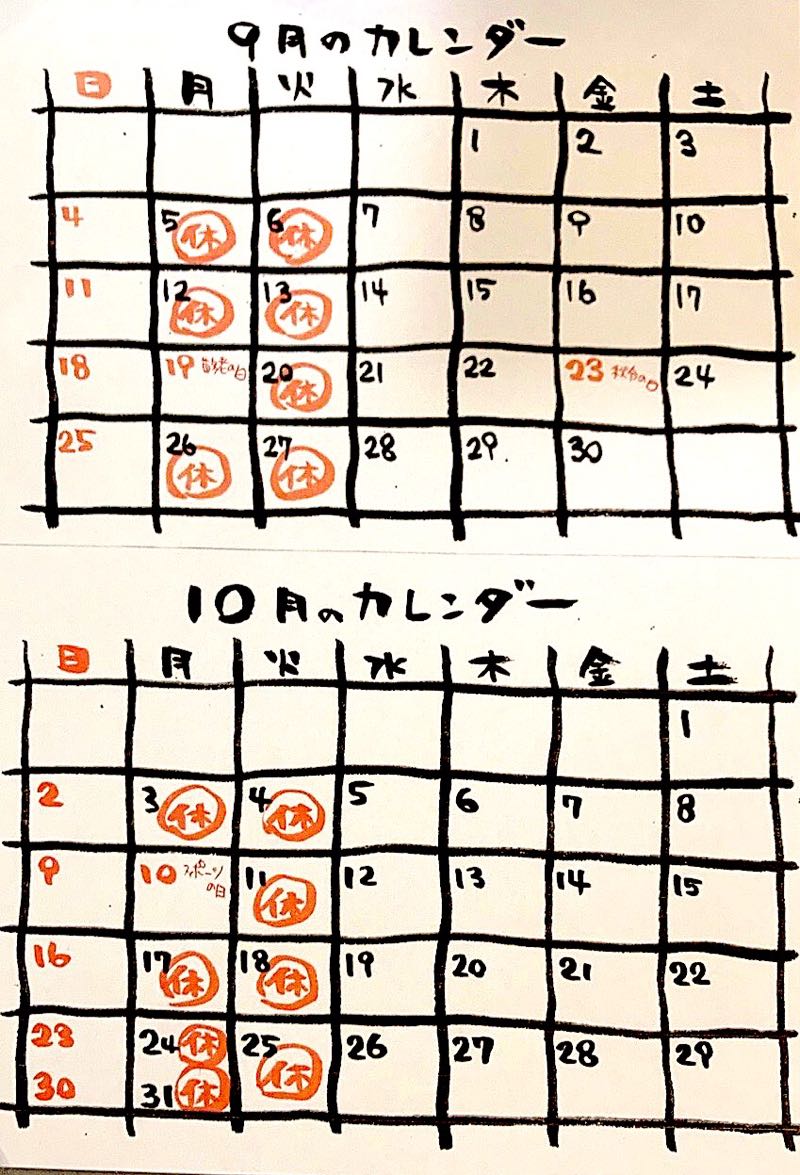 9月のカレンダー
日 月 火 水 木 金 土
1 2 3
4 5 休 6 休 7 8 9 10
11 12 休 13 休 14 15 16 17
18 19 敬老の日 20 休 21 22 23 秋分の日 24
25 26 休 27 休 28 29 30
10月のカレンダー
日 月 火 水 木 金 土
1
2 3 休 4 休 5 6 7 8
9 10 スポーツの日 11 休 12 13 14 15
16 17 休 18 休 19 20 21 22
23 24 休 25 休 26 27 28 29
30 31 休